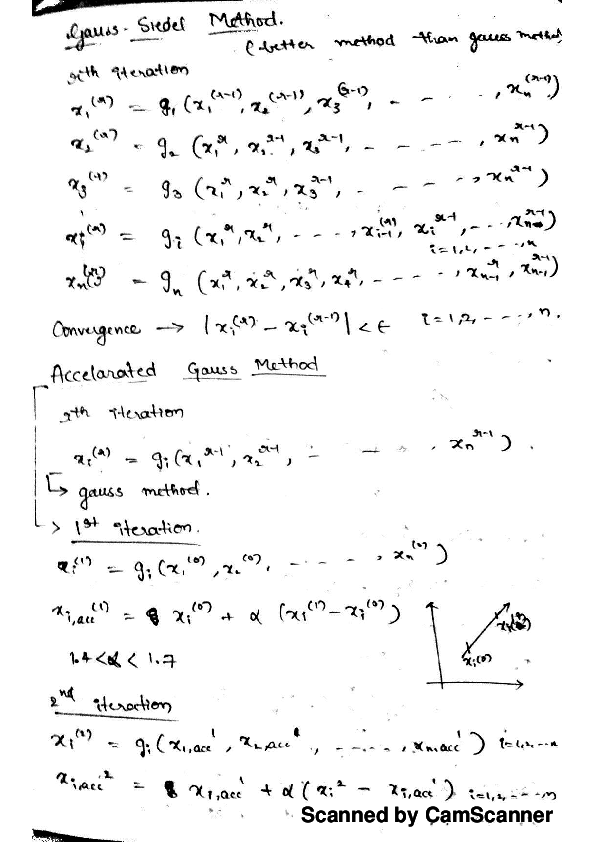 Gauss-Siedel Method.
(better method than gauss method
rth iteration
x₁⁽ʳ⁾ = g₁ (x₁⁽ʳ⁻¹⁾, x₂⁽ʳ⁻¹⁾, x₃⁽ʳ⁻¹⁾, - - - - , xₙ⁽ʳ⁻¹⁾)
x₂⁽ʳ⁾ = g₂ (x₁ʳ, x₂ʳ⁻¹, x₃ʳ⁻¹, - - - - - , xₙʳ⁻¹)
x₃⁽ʳ⁾ = g₃ (x₁ʳ, x₂ʳ, x₃ʳ⁻¹, - - - - , xₙʳ⁻¹)
xᵢ⁽ʳ⁾ = gᵢ (x₁ʳ, x₂ʳ, - - - - , xᵢ₋₁⁽ʳ⁾, xᵢʳ⁻¹, - - - , xₙʳ⁻¹)
i=1,2, - - - , n
xₙ⁽ʳ⁾ = gₙ (x₁ʳ, x₂ʳ, x₃ʳ, x₄ʳ, - - - - - , xₙ₋₁ʳ, xₙ₋₁ʳ⁻¹)
Convergence → |xᵢ⁽ʳ⁾ - xᵢ⁽ʳ⁻¹⁾| < ϵ i=1,2, - - - - , n.
Accelarated Gauss Method
rth iteration
xᵢ⁽ʳ⁾ = gᵢ (x₁ʳ⁻¹, x₂ʳ⁻¹, - - - - , xₙʳ⁻¹).
↳ gauss method.
> 1st iteration.
xᵢ⁽¹⁾ = gᵢ (x₁⁽⁰⁾, x₂⁽⁰⁾, - - - - - , xₙ⁽⁰⁾)
xᵢ,acc⁽¹⁾ = xᵢ⁽⁰⁾ + α (xᵢ⁽¹⁾ - xᵢ⁽⁰⁾)
xᵢ⁽⁰⁾
1.4 < α < 1.7
2nd iteration
xᵢ⁽²⁾ = gᵢ (x₁,acc¹, x₂,acc¹, - - - - , xₙ,acc¹) i=1,2, - - n
xᵢ,acc² = xᵢ,acc¹ + α (xᵢ² - xᵢ,acc¹) i=1,2, - - - - n
Scanned by CamScanner